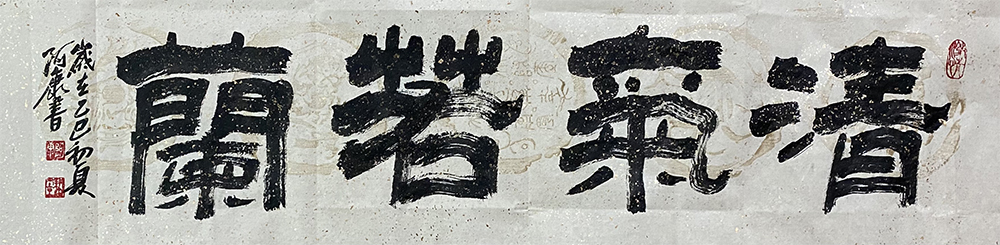 清氣若蘭
歲在乙巳初夏
阿康書